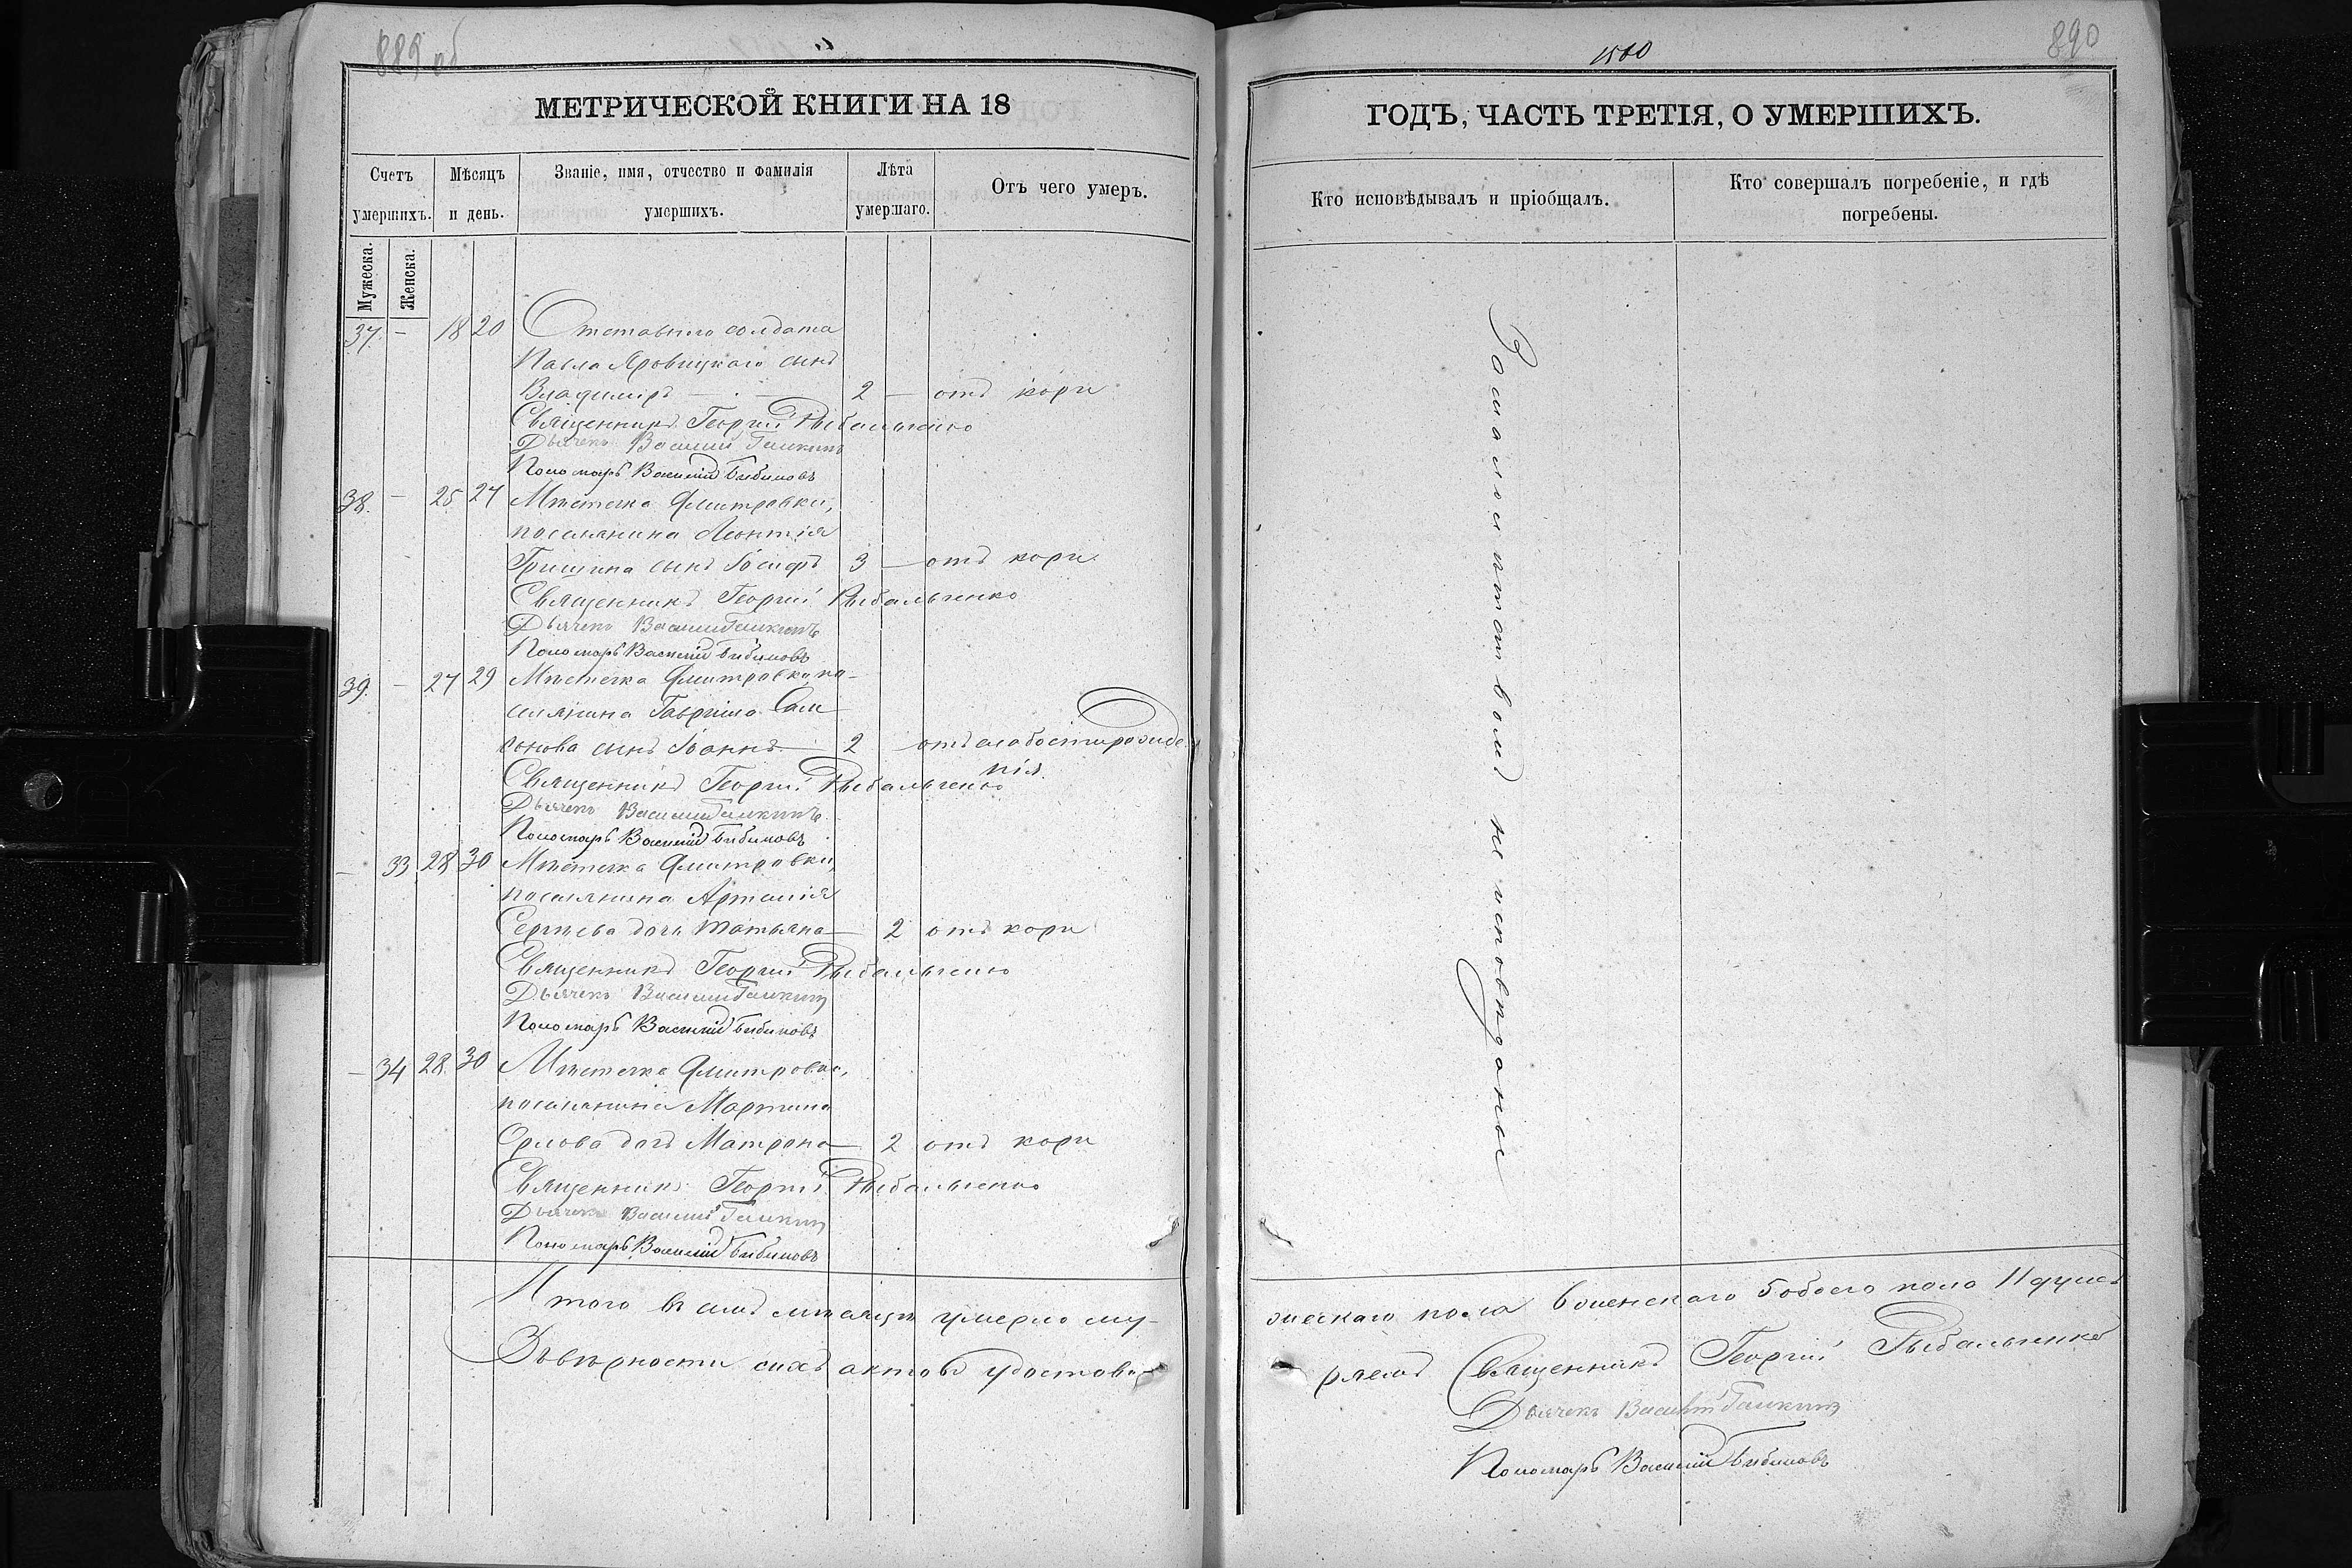 889 об
МЕТРИЧЕСКОЙ КНИГИ НА 18
Счетъ умершихъ.
Мѣсяцъ и день.
Званіе, имя, отчество и фамилія умершихъ.
Лѣта умершаго.
Отъ чего умеръ.
Мужеска.
Женска.
37. — 18 20 Отставного солдата
Павла Яровицкаго сынъ
Владиміръ — 2 — отъ кори
Священникъ Георгій Рыбальченко
Дьячекъ Василій
Пономарь Василій Бибиковъ
38. — 25 27 Мѣстечка Дмитровки,
поселянина Леонтія
Гришина сынъ Іосифъ 3 — отъ кори
Священникъ Георгій Рыбальченко
Дьячекъ Василій
Пономарь Василій Бибиковъ
39. — 27 29 Мѣстечка Дмитровки, по-
селянина Гавріила Сам
сонова сынъ Іоаннъ — 2 отъ слабости рожде
нія.
Священникъ Георгій Рыбальченко
Дьячекъ Василій
Пономарь Василій Бибиковъ
— 33 28 30 Мѣстечка Дмитровки,
поселянина Артемія
Сергѣева дочь Татьяна — 2 отъ кори
Священникъ Георгій Рыбальченко
Дьячекъ Василій
Пономарь Василій Бибиковъ
— 34 28 30 Мѣстечка Дмитровки,
поселянина Мартина
Орлова дочь Матрона — 2 отъ кори
Священникъ Георгій Рыбальченко
Дьячекъ Василій
Пономарь Василій Бибиковъ
Итого въ семъ мѣсяцѣ умерло му-
Въ вѣрности сихъ актовъ удостовѣ-
1500
890
ГОДЪ, ЧАСТЬ ТРЕТІЯ, О УМЕРШИХЪ.
Кто исповѣдывалъ и пріобщалъ.
Кто совершалъ погребеніе, и гдѣ погребены.
За малолѣтствомъ не исповѣданы
жескаго пола 6 женскаго 5 обоего пола 11 душъ
ряемъ Священникъ Георгій Рыбальченко
Дьячекъ Василій
Пономарь Василій Бибиковъ